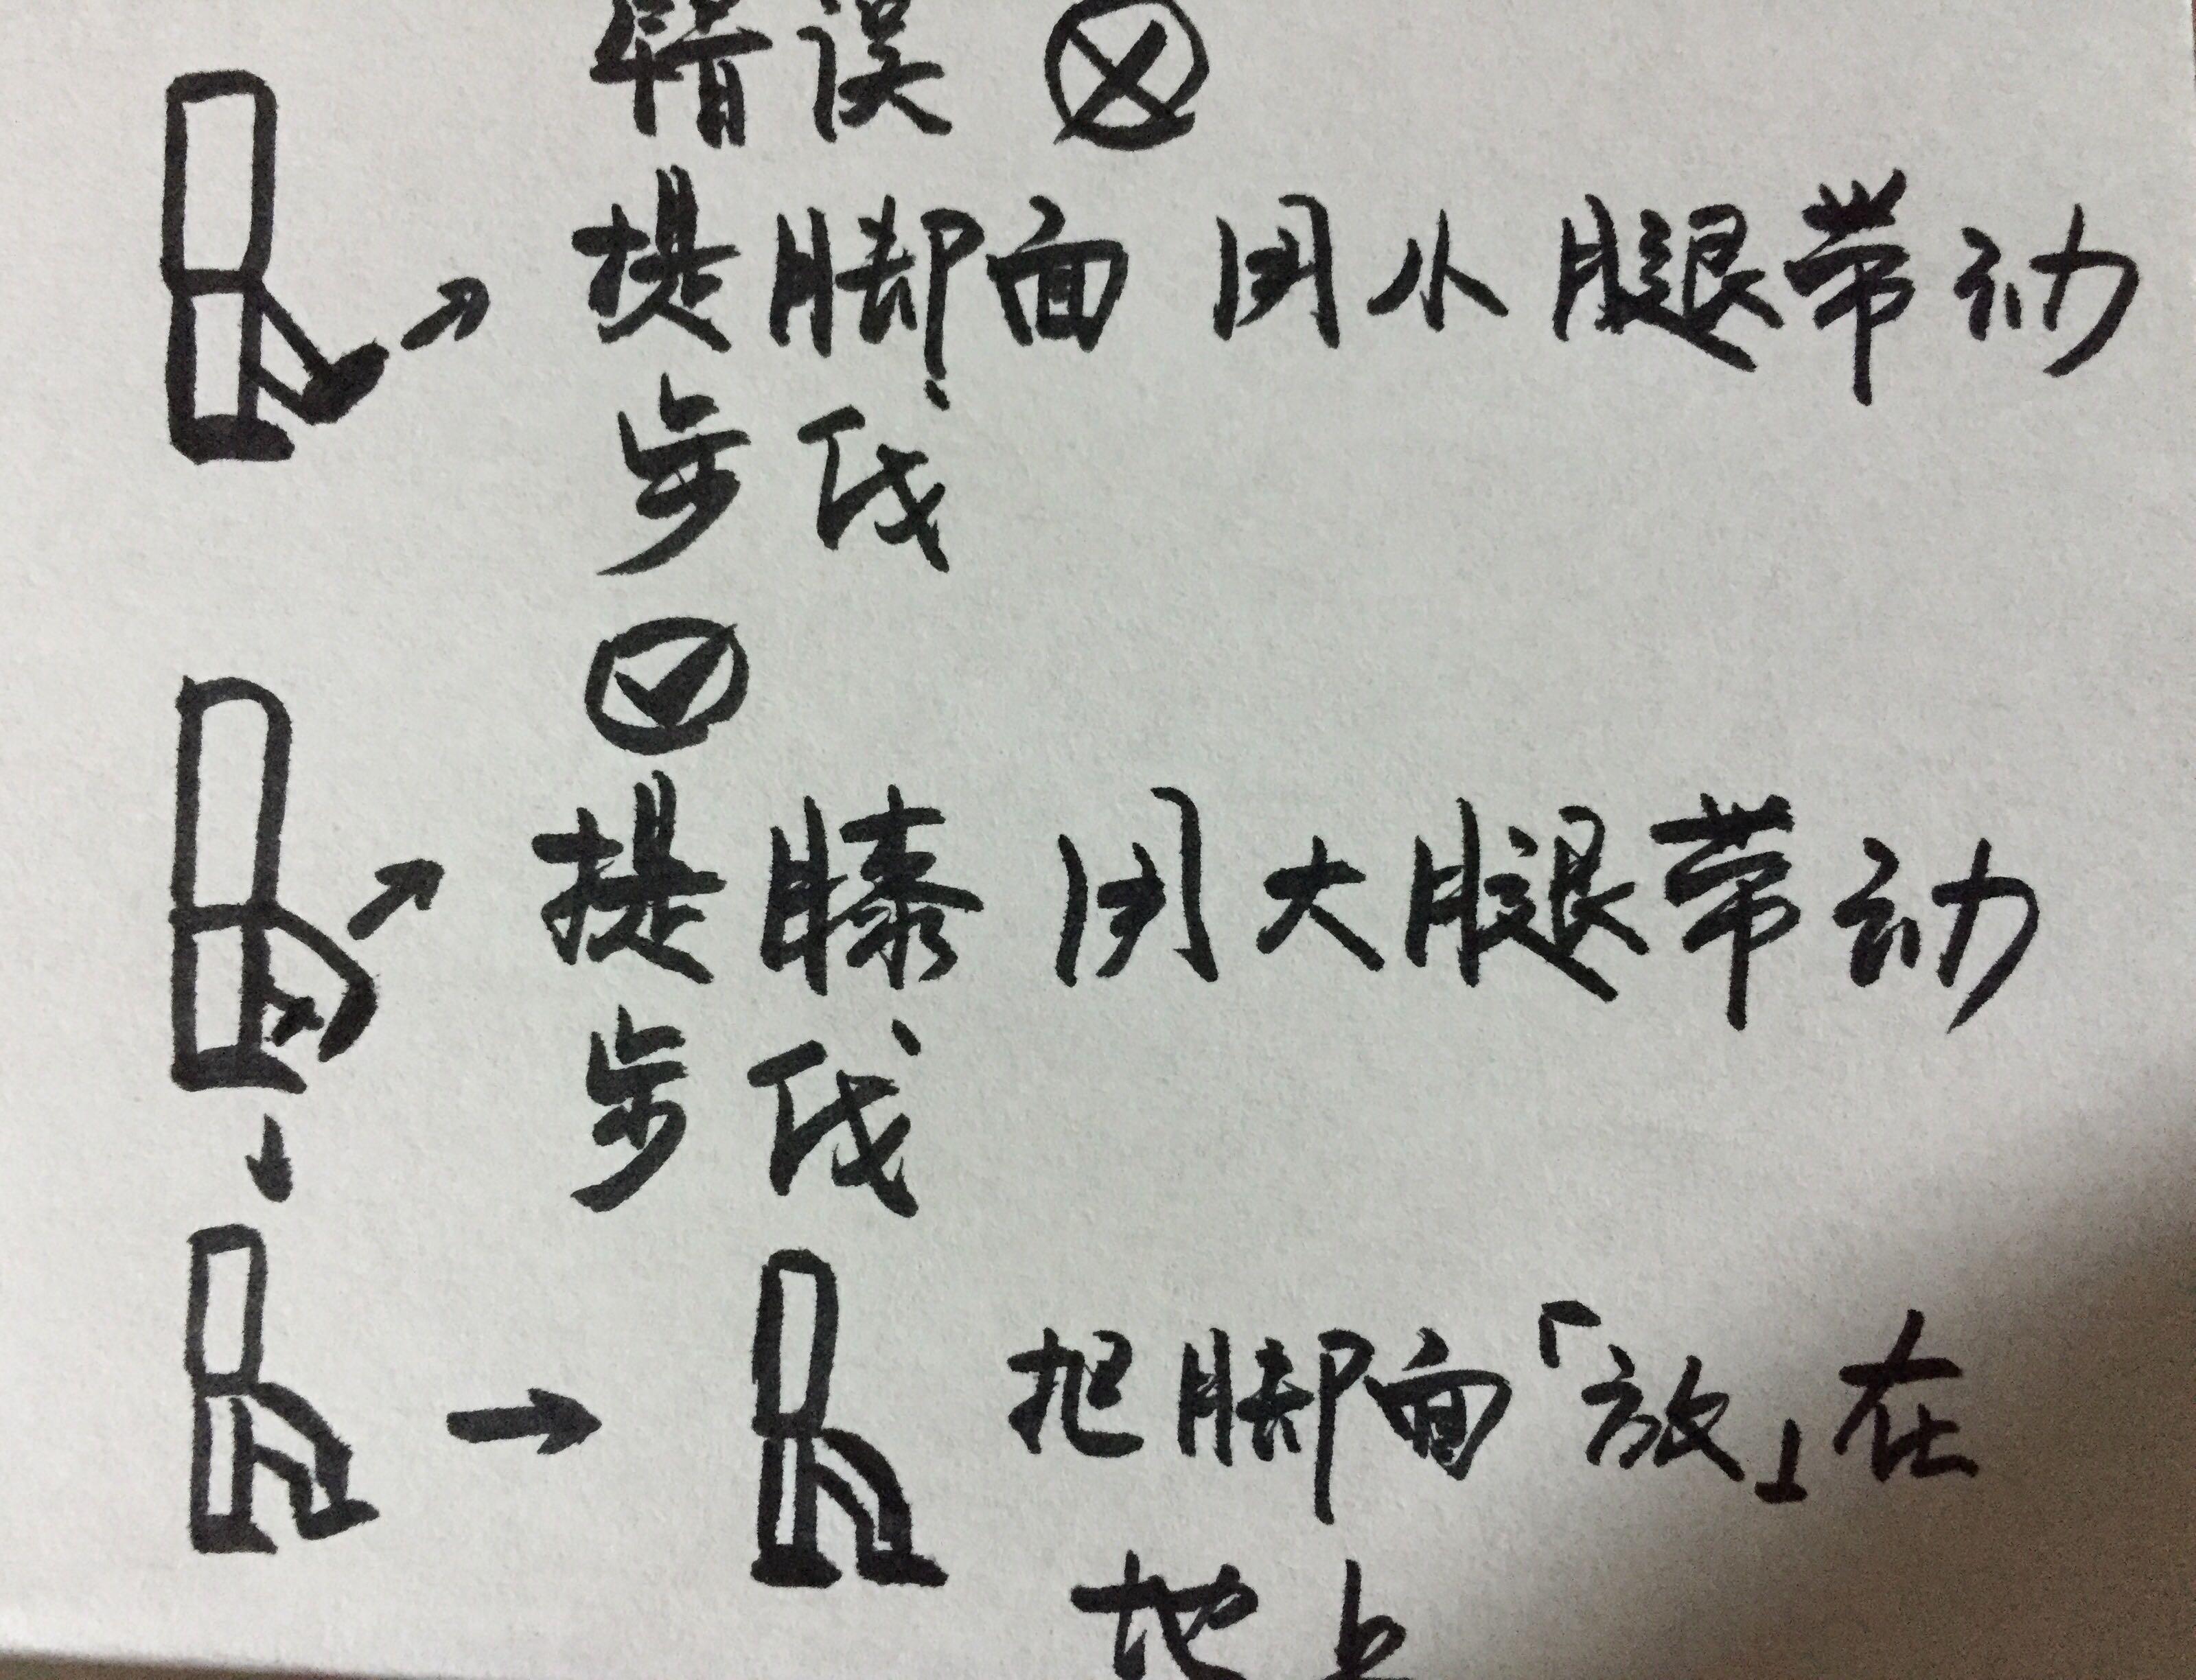 错误
提脚面 用小腿带动
步伐
提膝 用大腿带动
步伐
把脚面「放」在
地上